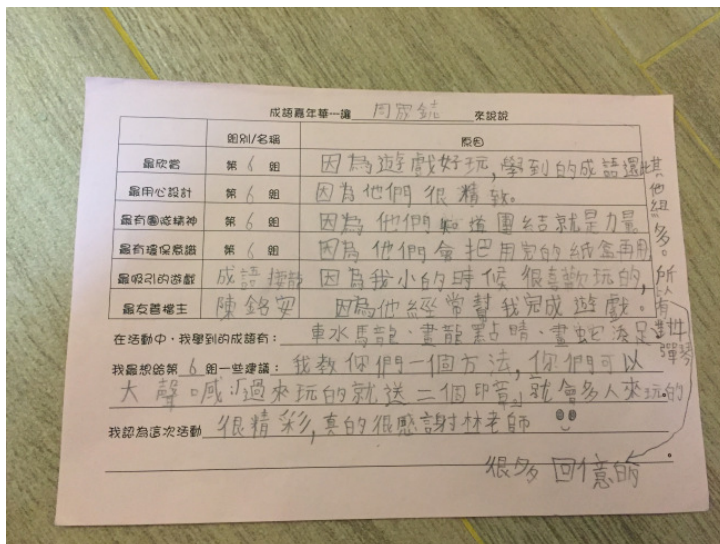 成語嘉年華—讓 周 來說說
組別/名稱 原因
最欣賞 第 6 組 因為遊戲好玩,學到的成語還比其他組多。
最用心設計 第 6 組 因為他們很精致。
最有團隊精神 第 6 組 因為他們知道團結就是力量
最有環保意識 第 6 組 因為他們會把用完的紙盒再用
最吸引的遊戲 成語接龍 因為我小的時候很喜歡玩的,所以有
很多回億的。
最友善檔主 陳銘安 因為他經常幫我完成遊戲。
在活動中,我學到的成語有: 車水馬龍、畫龍點睛、畫蛇添足、對牛
彈琴
我最想給第 6 組一些建議: 我教你們一個方法,你們可以
大聲喊:「過來玩的就送二個印章」就會多人來玩的。
我認為這次活動 很精彩,真的很感謝林老師